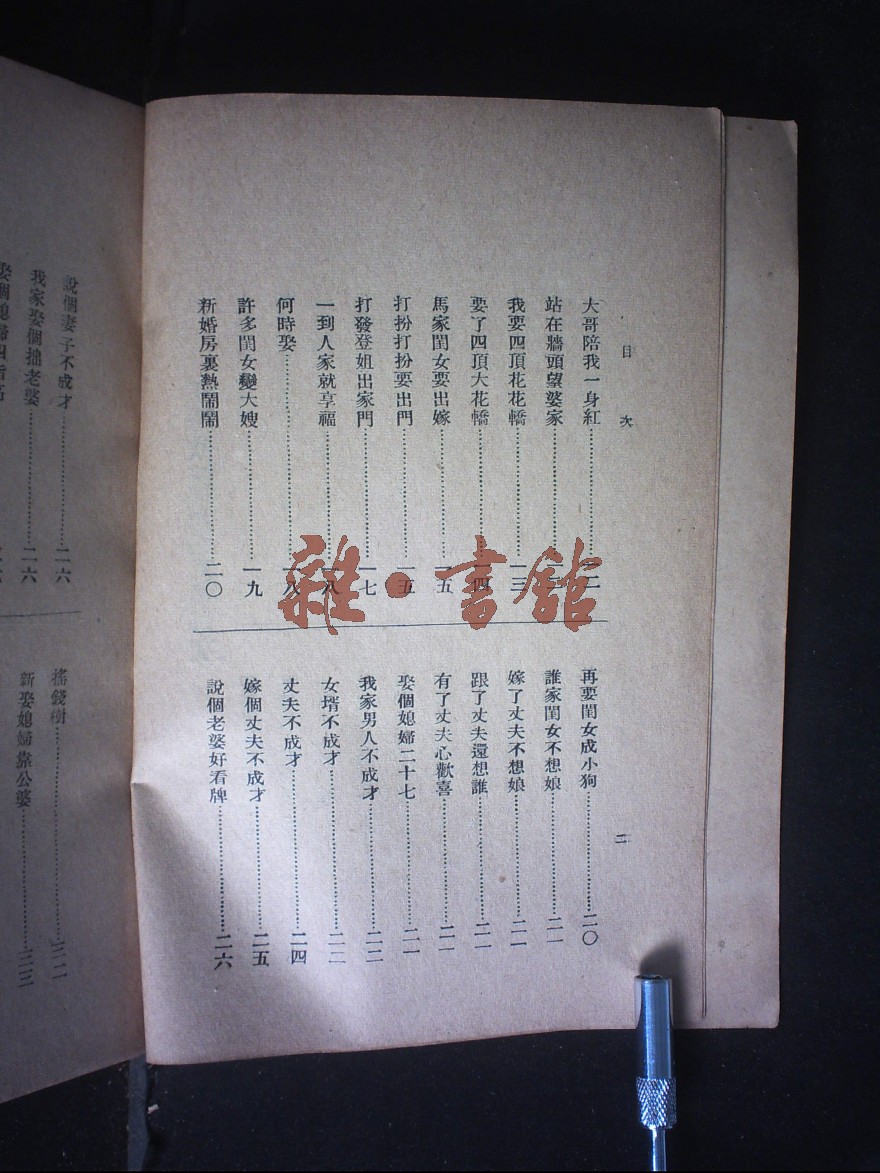 目次
大哥陪我一身紅……一二
站在牆頭望婆家……
我要四頂花花轎……一三
要了四頂大花轎……一四
馬家閨女要出嫁……一五
打扮打扮要出門……一五
打發登姐出家門……一七
一到人家就享福……一八
何時娶……一八
許多閨女變大嫂……一九
新婚房裏熱鬧鬧……二〇
再要閨女成小狗……二〇
誰家閨女不想娘……二一
嫁了丈夫不想娘……二一
跟了丈夫還想誰……二一
有了丈夫心歡喜……二一
娶個媳婦二十七……二一
我家男人不成才……二二
女壻不成才……二三
丈夫不成才……二四
嫁個丈夫不成才……二五
說個老婆好看牌……二六
二
說個妻子不成才……二六
我家娶個拙老婆……二六
娶個媳婦四指高
搖錢樹……三二
新娶媳婦靠公婆……三三
雜·書館